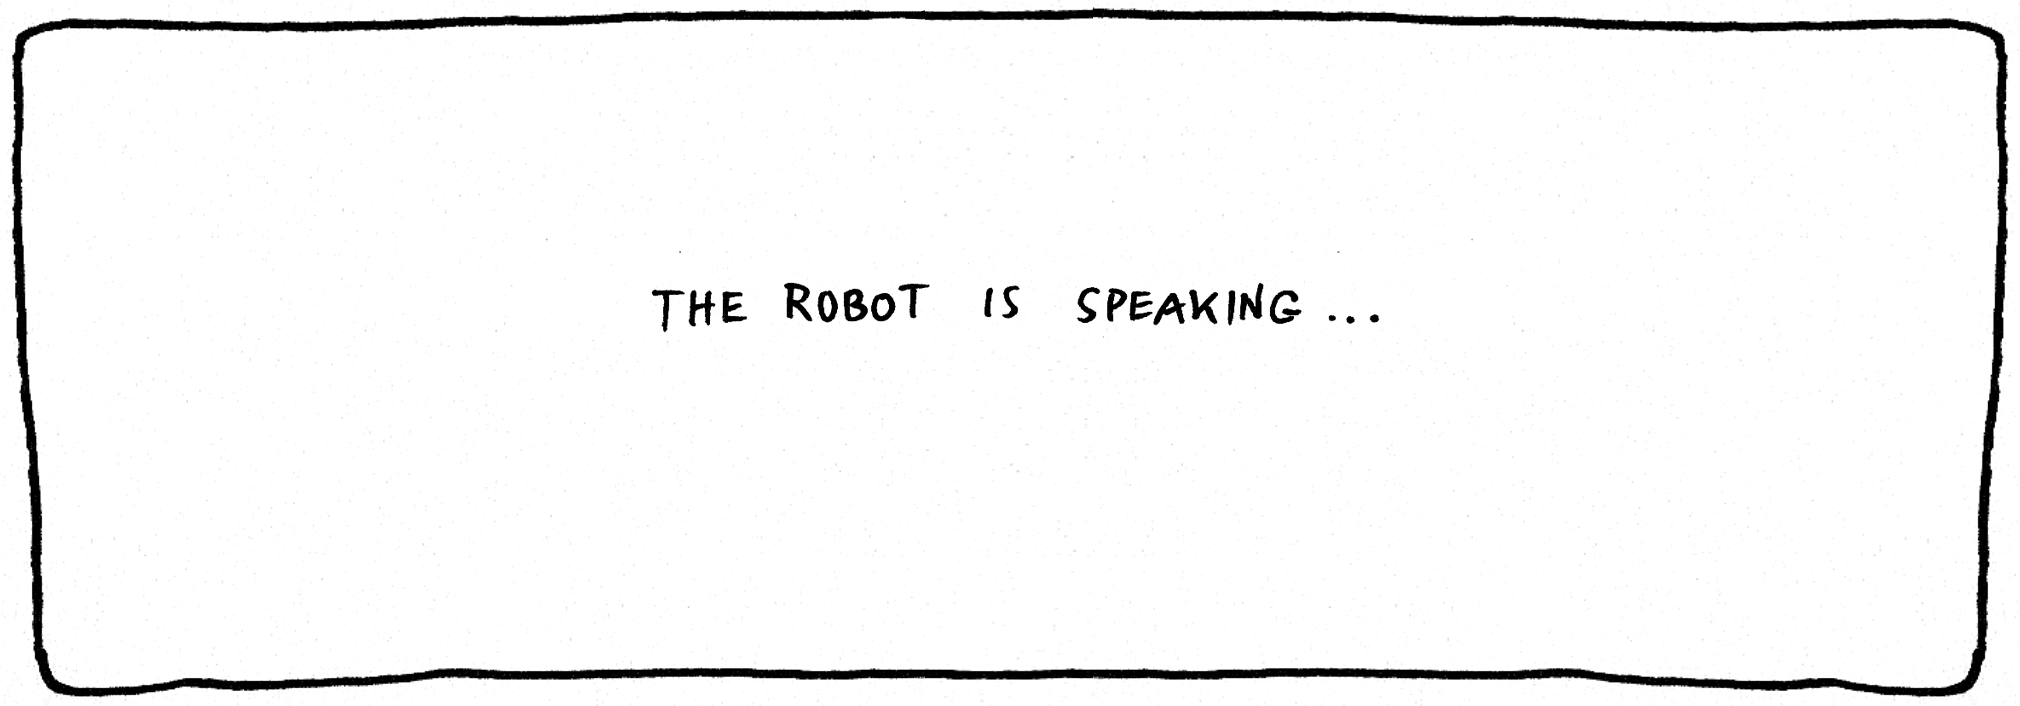 THE ROBOT IS SPEAKING...